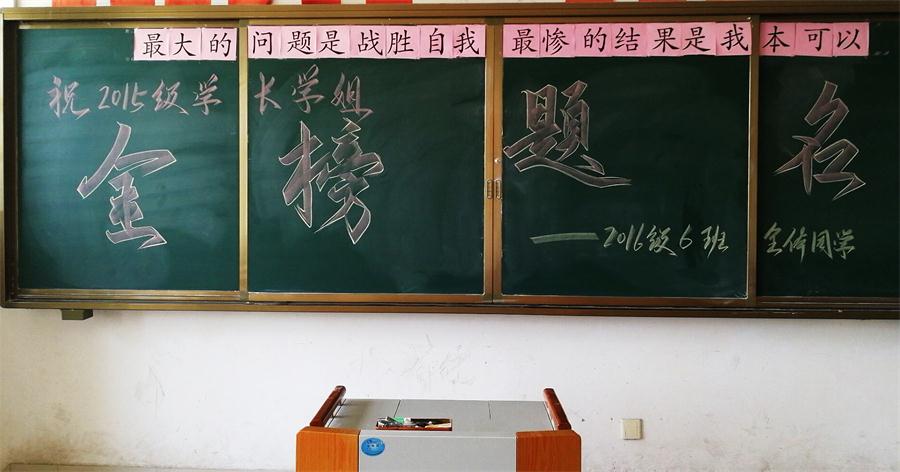 最大的问题是战胜自我 最惨的结果是我本可以
祝2015级学长学姐
金榜题名
——2016级6班 全体同学